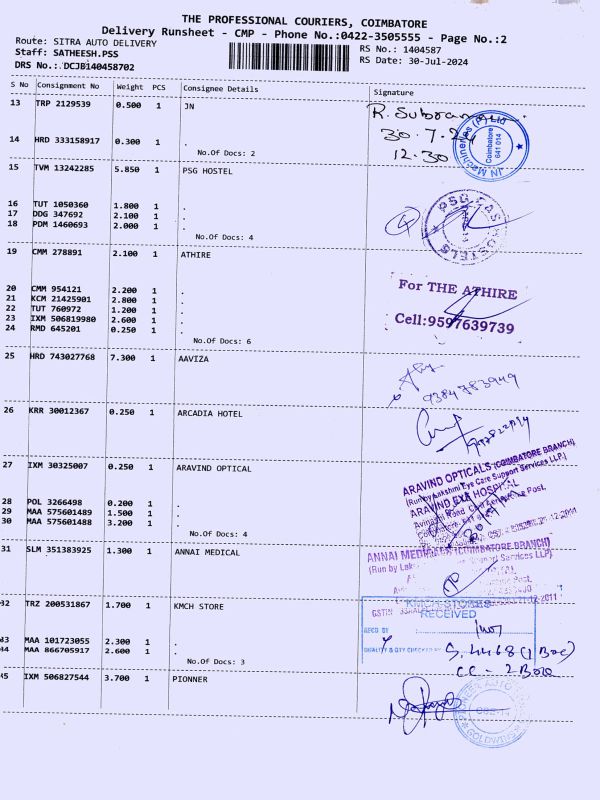 THE PROFESSIONAL COURIERS, COIMBATORE
Delivery Runsheet - CMP - Phone No.:0422-3505555 - Page No.:2
Route: SITRA AUTO DELIVERY RS No.: 1404587
Staff: SATHEESH.PSS RS Date: 30-Jul-2024
DRS No.: DCJB140458702
S No Consignment No Weight PCS Consignee Details Signature
13 TRP 2129539 0.500 1 JN
R. Subram
30.7.24
12.30
JN Machineries (P) Ltd
Coimbatore
641 014
14 HRD 333158917 0.300 1 .
No.Of Docs: 2
15 TVM 13242285 5.850 1 PSG HOSTEL
16 TUT 1050360 1.800 1 .
17 DDG 347692 2.100 1 .
18 PDM 1460693 2.000 1 .
No.Of Docs: 4
4
PSG CAS HOSTELS
19 CMM 278891 2.100 1 ATHIRE
20 CMM 954121 2.200 1 .
21 KCM 21425901 2.800 1 .
22 TUT 760972 1.200 1 .
23 IXM 506819980 2.600 1 .
24 RMD 645201 0.250 1 .
No.Of Docs: 6
For THE ATHIRE
Cell:9597639739
25 HRD 743027768 7.300 1 AAVIZA
9384783949
26 KRR 30012367 0.250 1 ARCADIA HOTEL
27 IXM 30325007 0.250 1 ARAVIND OPTICAL
28 POL 3266498 0.200 1 .
29 MAA 575601489 1.500 1 .
30 MAA 575601488 3.200 1 .
No.Of Docs: 4
ARAVIND OPTICALS (COIMBATORE BRANCH)
(Run by Lakshmi Eye Care Support Services LLP)
ARAVIND EYE HOSPITAL
Avinashi Road, Civil Aerodrome Post,
31 SLM 351383925 1.300 1 ANNAI MEDICAL
ANNAI MEDICALS (COIMBATORE BRANCH)
(Run by Lak Support Services LLP)
32 TRZ 200531867 1.700 1 KMCH STORE
43 MAA 101723055 2.300 1 .
44 MAA 866705917 2.600 1 .
No.Of Docs: 3
KMCH STORES
RECEIVED
RECD BY
QUALITY & QTY CHECKED BY
S. 4468 (1 Box)
CC - 2 Box
45 IXM 506827544 3.700 1 PIONNER
GOLDWINS